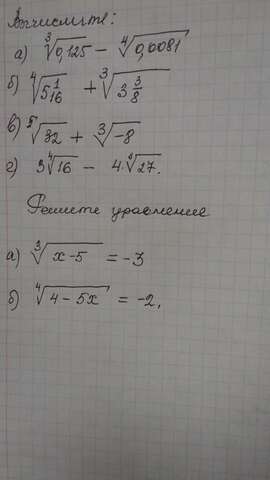 Вычислить:
а) ∛0,125 − ∜0,0081
б) ∜(5 1/16) + ∛(3 3/8)
в) ⁵√32 + ∛−8
г) 3∜16 − 4·∛27.
Решите уравнение
а) ∛(x−5) = −3
б) ∜(4−5x) = −2,